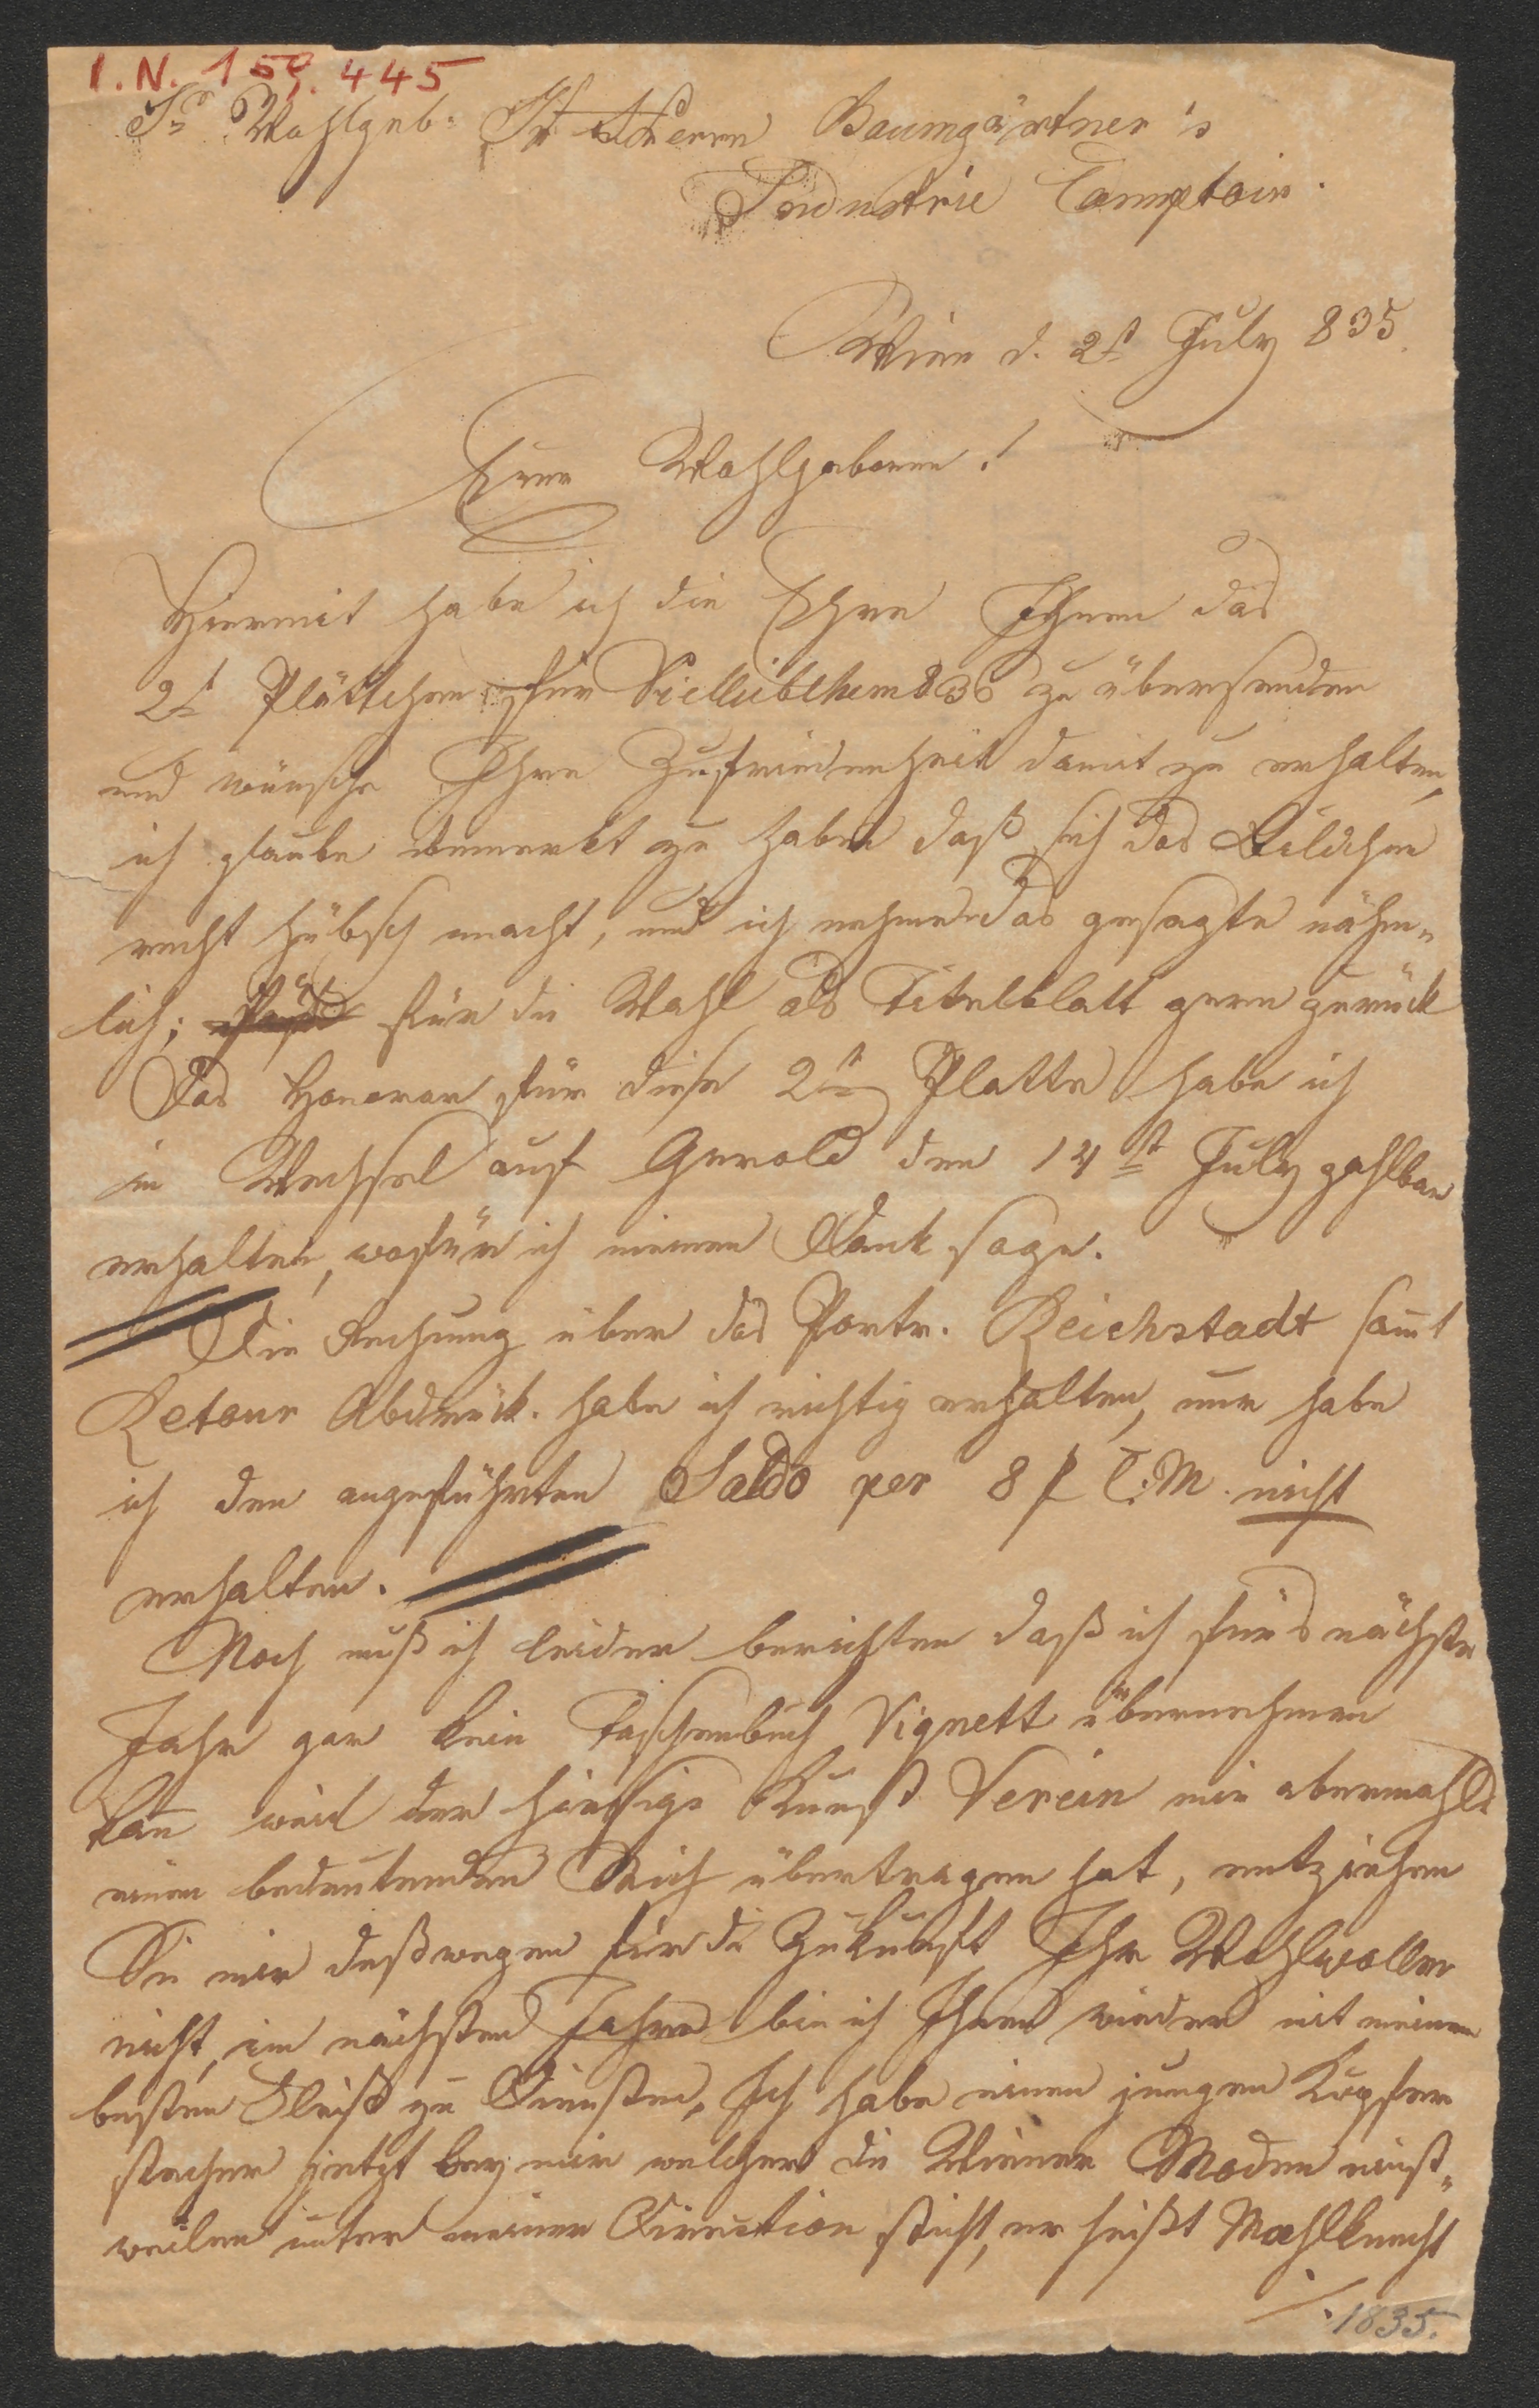 I. N. 159.445
Sr Wohlgeb. Herrn Baumgärtner's
Industrie Comptoir.
Wien d. 2t July 835.
Euer Wohlgeboren!
Hiermit habe ich die Ehre Ihnen das
2t Plättchen für Vielliebchen 836 zu übersenden
und wünsche Ihre Zufriedenheit damit zu erhalten,
ich glaube bemerkt zu haben daß sich das Bildchen
recht hübsch macht, und ich nehme das gesagte nähm-
lich; für die Wahl als Titelblatt gern zurück
Das Honorar für diese 2te Platte habe ich
in Wechsel auf Gerold den 14t July zahlbar
erhalten, wofür ich meinen Dank sage.
Die Rechnung über das Portr. Reichstadt samt
Retour Abdrück. habe ich richtig erhalten, nur habe
ich den angeführten Saldo per 8 f C.M. nicht
erhalten.
Noch muß ich leider berichten daß ich für's nächste
Jahr gar kein Taschenbuch Vignett übernehmen
kan̄ weil der hiesige Kunst Verein mir abermahls
einen bedeutenden Stich übertragen hat, entziehen
Sie mir deßwegen für die Zukunft Ihr Wohlwollen
nicht, im nächsten Jahre bin ich Ihnen wieder mit meinem
besten Fleiß zu Diensten. Ich habe einen jungen Kupfer
stecher jetzt bey mir welcher die Wiener Moden einst-
weilen unter meiner Direction sticht, er heißt Mahlknecht
./.
1835.